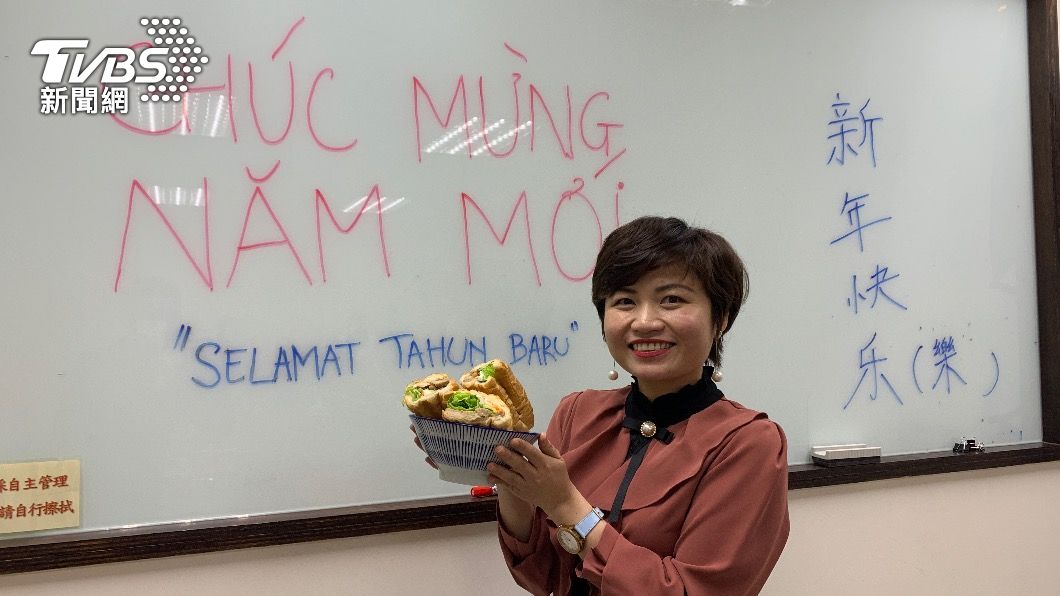 TVBS
新聞網
CHÚC MỪNG
NĂM MỚI
"SELAMAT TAHUN BARU"
新年快乐(樂)
自主管理
請自行擦拭